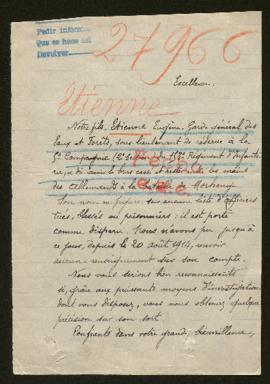 Pedir informe
que se hace así
Devolver.
27966
Excellence,
Etienne
Notre fils, Etienne Eugène, Garde Général des
Eaux et Forêts, sous-lieutenant de réserve à la
5e Compagnie
a le bras cassé et resté les mains
des allemands à
Son nom ne figure sur aucune liste d'officiers
tués, blessés ou prisonniers : il est porté
comme disparu. Nous n'avons pu jusqu'à
ce jour, depuis le 20 août 1914, avoir
aucun renseignement sur son compte.
Nous vous serions bien reconnaissants
si, grâce aux puissants moyens d'investigation
dont vous disposez, vous nous obteniez quelque
précision sur son sort.
Confiants dans votre grande bienveillance,